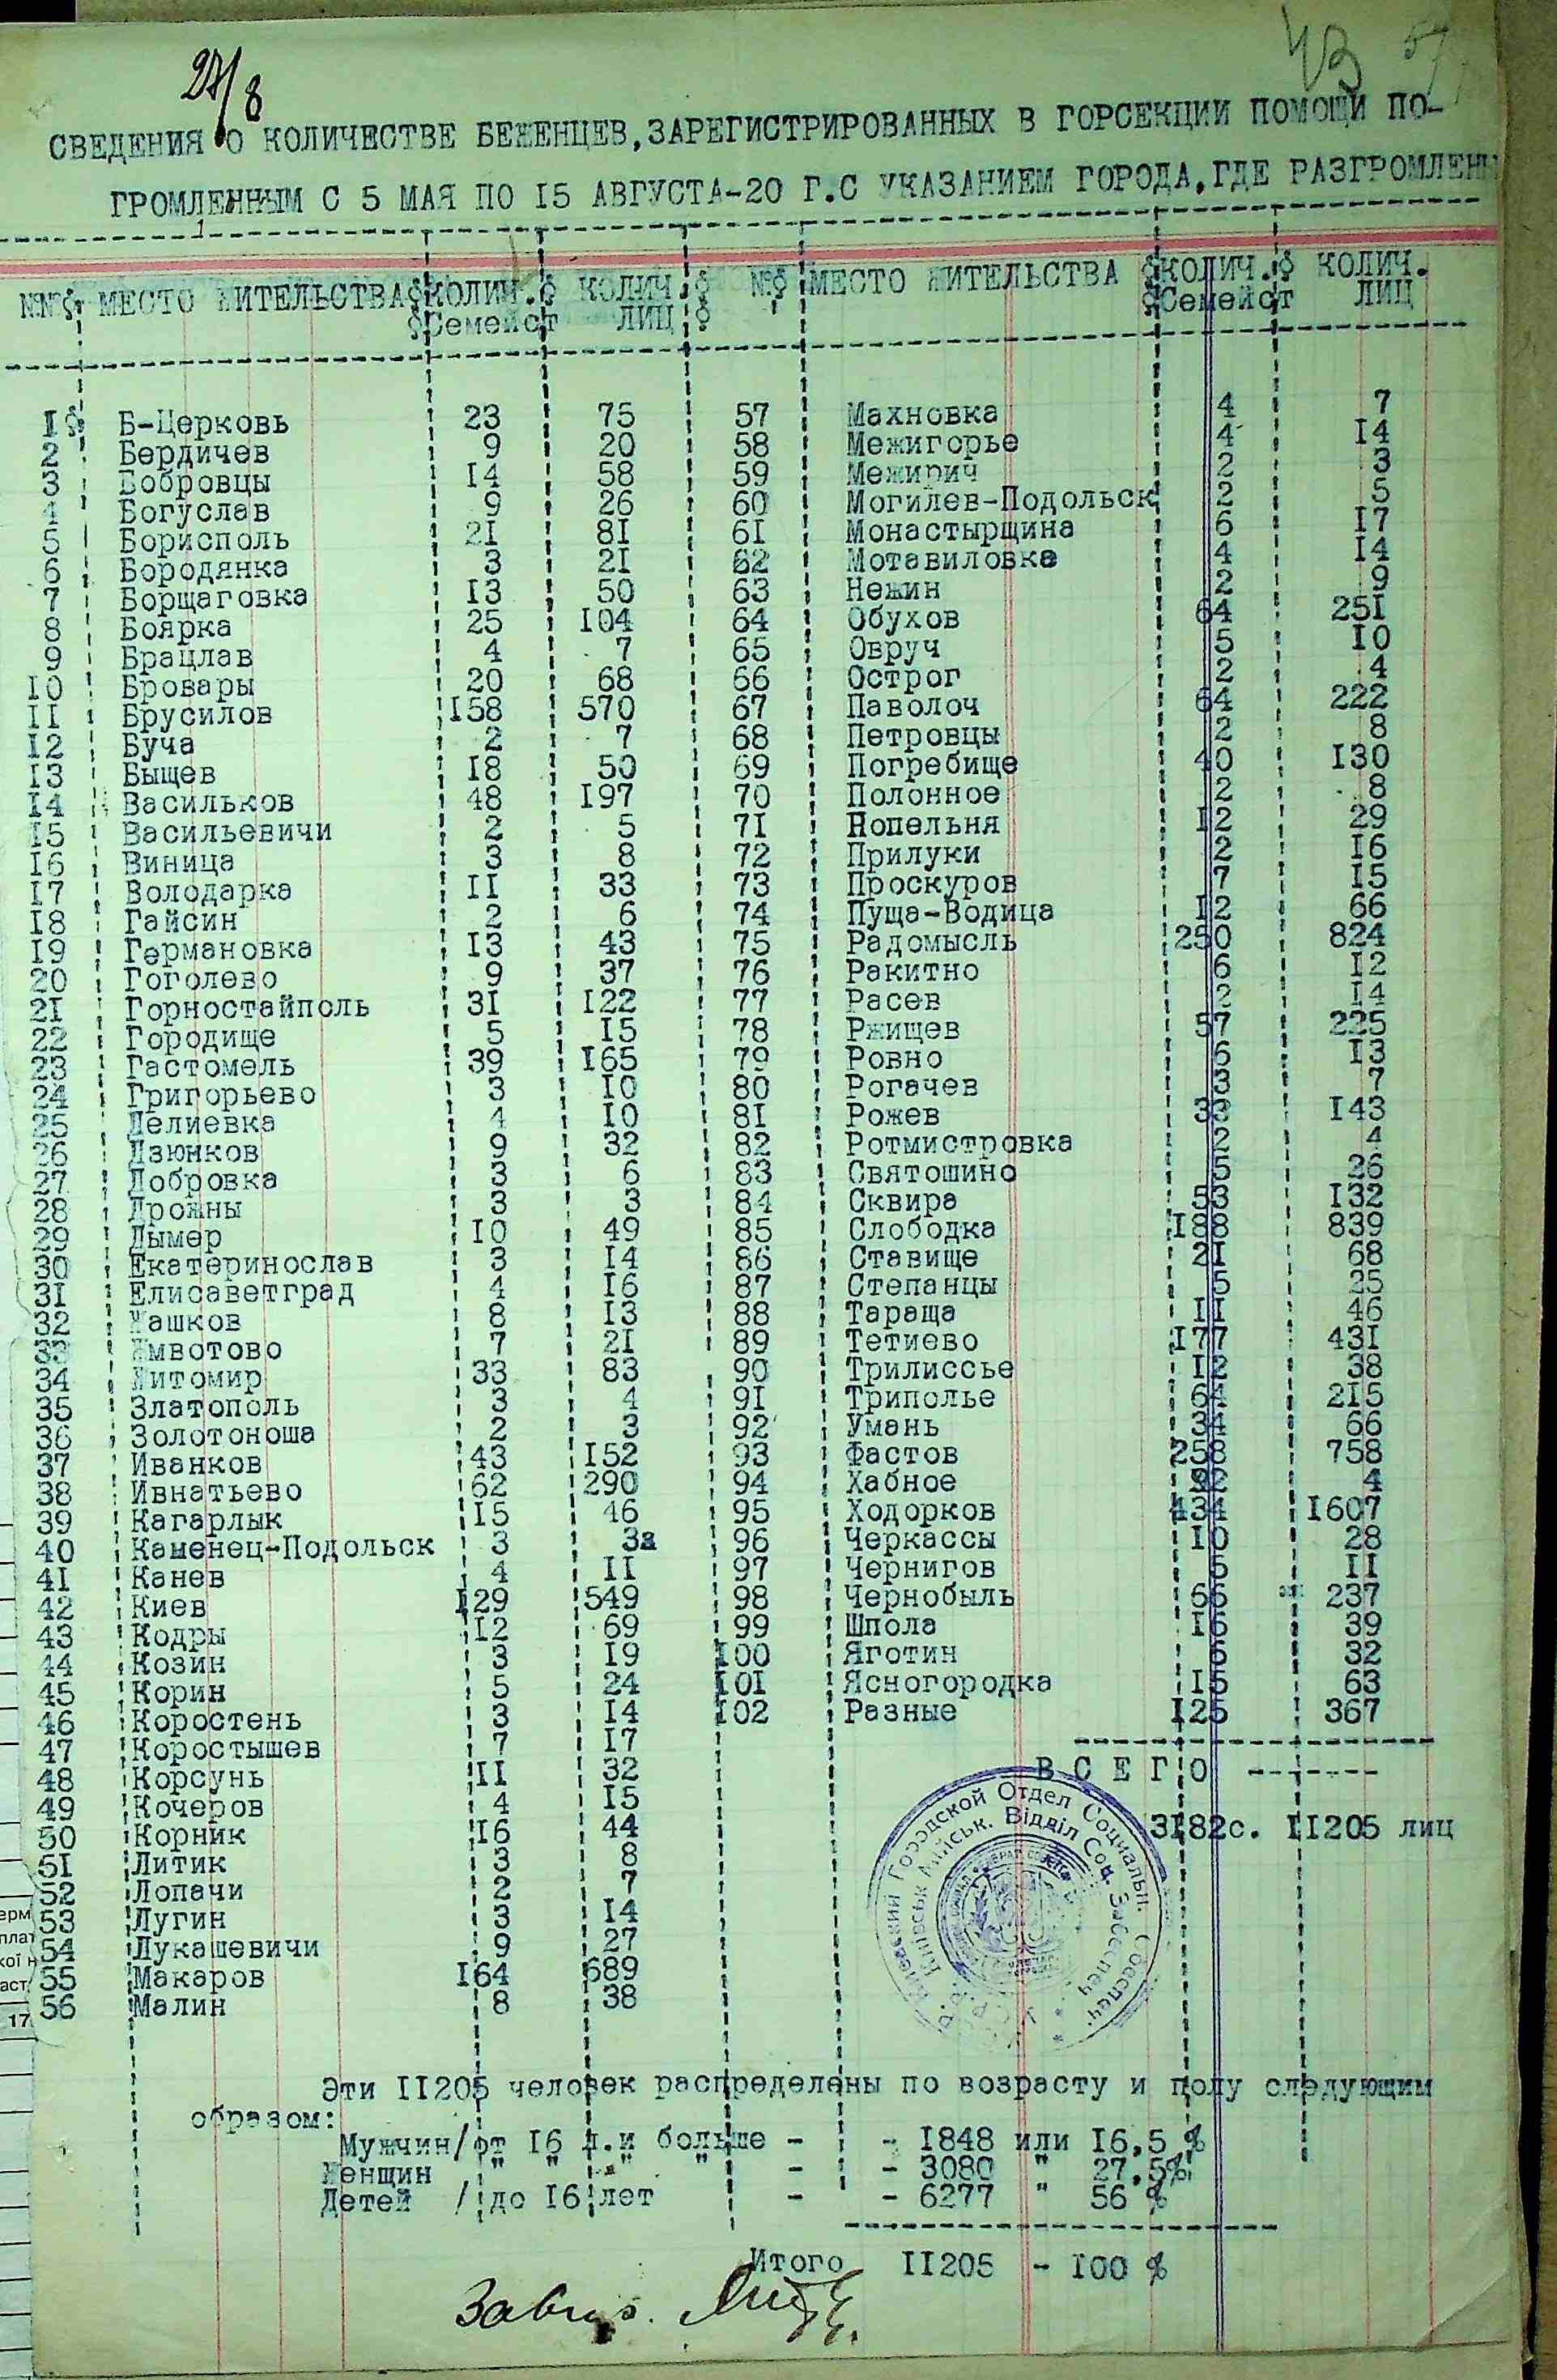 27/8
43
СВЕДЕНИЯ О КОЛИЧЕСТВЕ БЕЖЕНЦЕВ,ЗАРЕГИСТРИРОВАННЫХ В ГОРСЕКЦИИ ПОМОЩИ ПО-
ГРОМЛЕННЫМ С 5 МАЯ ПО I5 АВГУСТА-20 Г.С УКАЗАНИЕМ ГОРОДА,ГДЕ РАЗГРОМЛЕНЫ
№№ МЕСТО ЖИТЕЛЬСТВА КОЛИЧ. КОЛИЧ. № МЕСТО ЖИТЕЛЬСТВА КОЛИЧ. КОЛИЧ.
Семейст ЛИЦ Семейст ЛИЦ
I Б-Церковь 23 75 57 Махновка 4 7
2 Бердичев 9 20 58 Межигорье 4 I4
3 Бобровцы I4 58 59 Межирич 2 3
4 Богуслав 9 26 60 Могилев-Подольск 2 5
5 Борисполь 2I 8I 6I Монастырщина 6 I7
6 Бородянка 3 2I 62 Мотавиловка 4 I4
7 Борщаговка I3 50 63 Нежин 2 9
8 Боярка 25 I04 64 Обухов 64 25I
9 Брацлав 4 7 65 Овруч 5 I0
I0 Бровары 20 68 66 Острог 2 4
II Брусилов I58 570 67 Паволоч 64 222
I2 Буча 2 7 68 Петровцы 2 8
I3 Быщев I8 50 69 Погребище 40 I30
I4 Васильков 48 I97 70 Полонное 2 8
I5 Васильевичи 2 5 7I Попельня I2 29
I6 Виница 3 8 72 Прилуки 2 I6
I7 Володарка II 33 73 Проскуров 7 I5
I8 Гайсин 2 6 74 Пуща-Водица I2 66
I9 Германовка I3 43 75 Радомысль 250 824
20 Гоголево 9 37 76 Ракитно 6 I2
2I Горностайполь 3I I22 77 Расев 2 I4
22 Городище 5 I5 78 Ржищев 57 225
23 Гастомель 39 I65 79 Ровно 6 I3
24 Григорьево 3 I0 80 Рогачев 3 7
25 Делиевка 4 I0 8I Рожев 33 I43
26 Дзюнков 9 32 82 Ротмистровка 2 4
27 Добровка 3 6 83 Святошино 5 26
28 Дрожны 3 3 84 Сквира 53 I32
29 Дымер I0 49 85 Слободка I88 839
30 Екатеринослав 3 I4 86 Ставище 2I 68
3I Елисаветград 4 I6 87 Степанцы 5 25
32 Жашков 8 I3 88 Тараща II 46
33 Животово 7 2I 89 Тетиево I77 43I
34 Житомир 33 83 90 Трилиссье I2 38
35 Златополь 3 4 9I Триполье 64 2I5
36 Золотоноша 2 3 92 Умань 34 66
37 Иванков 43 I52 93 Фастов 258 758
38 Ивнатьево 62 290 94 Хабное 4
39 Кагарлык I5 46 95 Ходорков 434 I607
40 Каменец-Подольск 3 96 Черкассы I0 28
4I Канев 4 II 97 Чернигов 5 II
42 Киев I29 549 98 Чернобыль 66 237
43 Кодры I2 69 99 Шпола I6 39
44 Козин 3 I9 I00 Яготин 6 32
45 Корин 5 24 I0I Ясногородка I5 63
46 Коростень 3 I4 I02 Разные I25 367
47 Коростышев 7 I7
48 Корсунь II 32 В С Е Г О
49 Кочеров 4 I5
50 Корник I6 44 3I82с. II205 лиц
5I Литик 3 8
52 Лопачи 2 7
53 Лугин 3 I4
54 Лукашевичи 9 27
55 Макаров I64 689
56 Малин 8 38
Киевский Городской Отдел Социальн. Обеспеч.
Київськ Мійськ. Відділ Соц. Забеспеч
Эти II205 человек распределены по возрасту и полу следующим
образом:
Мужчин/от I6 л.и больше - - I848 или I6,5 %
Женщин " " " " - - 3080 " 27,5%
Детей / до I6 лет - - 6277 " 56 %
Итого II205 - I00 %
Завид.